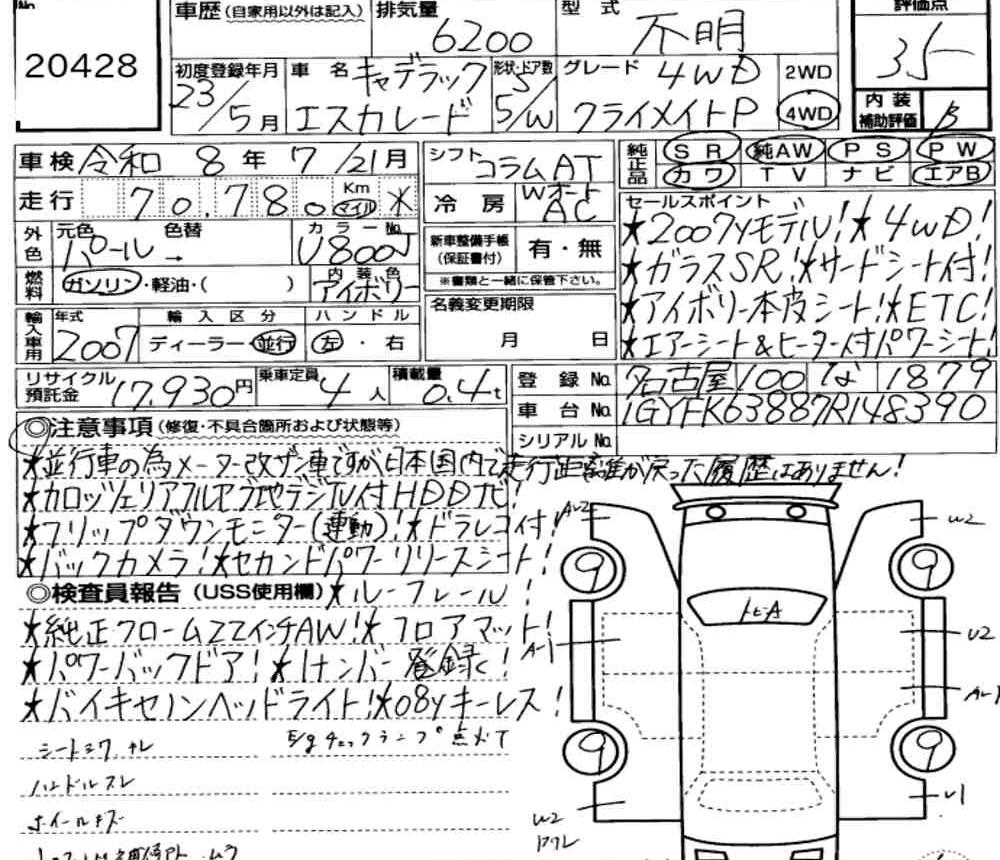 No.
20428
車歴(自家用以外は記入)
排気量
6200
型式
不明
評価点
3.5
内装
補助評価
B
初度登録年月
23/5月
車名
キャデラック
エスカレード
形状・ドア数
5/W
グレード
4WD
クライメイトP
2WD
4WD
車検 令和 8年 7/21月
走行 70,780 Km マイル *
外色
元色
パール→
色替
カラーNo.
U800J
燃料
ガソリン・軽油・( )
内装色
アイボリー
輸入車用
年式
2007
輸入区分
ディーラー・並行
ハンドル
左・右
シフト コラムAT
冷房 WオートAC
新車整備手帳
(保証書付)
有・無
※書類と一緒に保管下さい。
名義変更期限
月 日
純正品
SR 純AW PS PW
カワ TV ナビ エアB
セールスポイント
★2007yモデル!★4WD!
★ガラスSR!★サードシート付!
★アイボリー本皮シート!★ETC!
★エアーシート&ヒーター付パワーシート!
リサイクル
預託金
17,930円
乗車定員
4人
積載量
0.4t
登録No. 名古屋 100 な 1879
車台No. 1GYFK63887R148390
シリアルNo.
◎注意事項(修復・不具合箇所および状態等)
★並行車の為メーター改ザン車ですが日本国内で走行距離が戻った履歴はありません!
★カロッツェリアフルセグ地デジTV付HDDナビ!
★フリップダウンモニター(連動)!★ドラレコ付!
★バックカメラ!★セカンドパワーリリースシート!
◎検査員報告(USS使用欄)★ルーフレール!
★純正クローム22インチAW!★フロアマット!
★パワーバックドア!★1ナンバー登録!
★バイキセノンヘッドライト!★08yキーレス!
シートシワ、スレ
E/gチェックランプ点灯
ハンドルスレ
ホイールキズ
A2
W2
9
9
トビA
A-1
U2
A-1
9
9
W2
U1